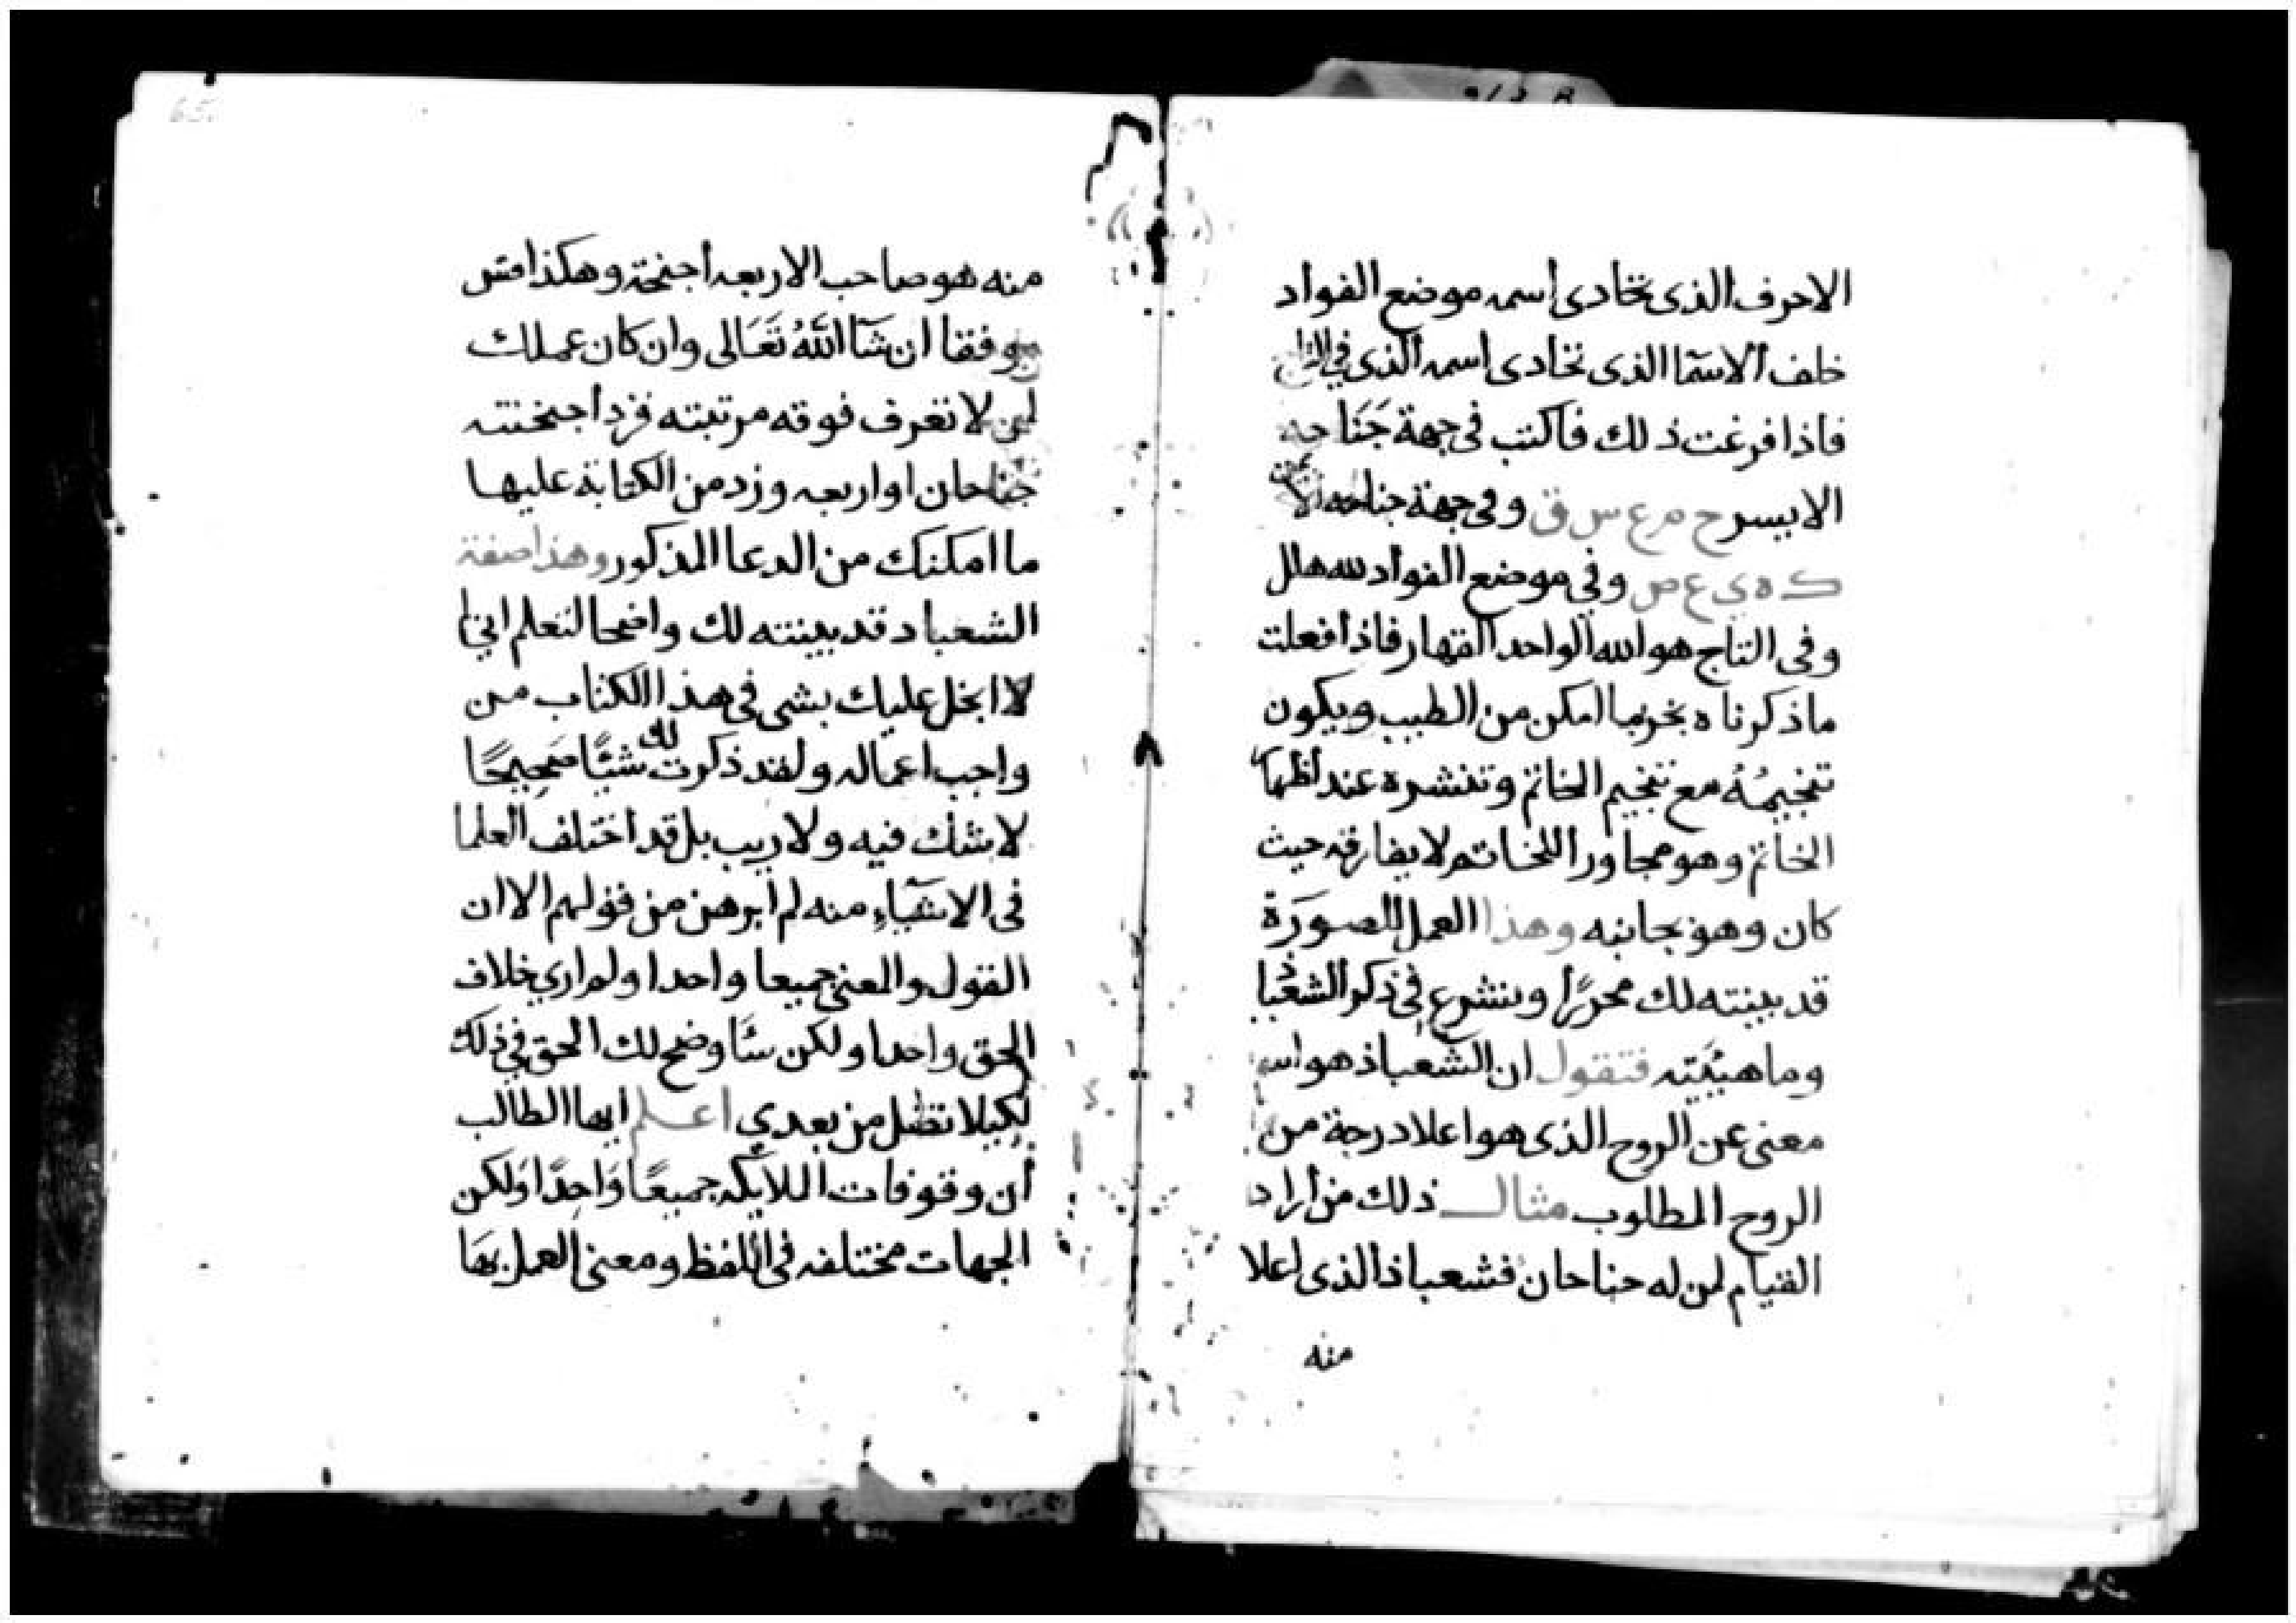 الاحرف الذى تحادى اسمه موضع الفواد
خلف الاسما الذى تحادى اسمه الذى فى التاج
فاذا فرغت ذلك فاكتب فى جهة جَنَاحه
الايسر ح م ع س ق وفى جهة جناحه الايمن
ك ه ي ع ص وفي موضع الفواد لله هلل
وفى التاج هو الله الواحد القهار فاذا فعلت
ما ذكرناه بخربما امكن من الطيب ويكون
تنجيمُهُ مع تنجيم الخاتم وتنشره عند
الخاتم وهو مجاور اللخاتم لايفارقه حيث
كان وهو بجانبه وهذا العمل للصورَة
قد بينته لك محررًا وننشرع فى ذكر الشعباذ
وما هيئته فتقول ان الشعباذ هو اسم
معنى عن الروح الذى هو اعلا درجة من
الروح المطلوب مثال ذلك من اراد
القيام لمن له جناحان فشعباذ الذى اعلا
منه
65
منه هو صاحب الاربعه اجنحة وهكذا
موفقا ان شآ اللهُ تَعَالى وان كان عملك
لمن لا تعرف فوقه مرتبته فزد اجنحته
جناحان او اربعه وزد من الكتابة عليها
ما امكنك من الدعا المذكور وهذا صفة
الشعباد قد بينته لك واضحا لتعلم انى
لا ابخل عليك بشى فى هذا الكتاب من
واجب اعماله ولقد ذكرت لك شيًا صَحِيحًا
لا شك فيه ولا ريب بل قد اختلف العلما
فى الاشيآءِ منه لم ابرهن من قولهم الا ان
القول والمعنى جميعا واحدا ولم ارى خلاف
الحق واحدا ولكن سَا وضح لك الحق فى ذلك
لكيلا تضل من بعدي اعلم ايها الطالب
ان وقوفات الملايكه جميعًا وَاحِدًا وَلكن
الجهات مختلفه فى اللفظ ومعنى العمل بهَا